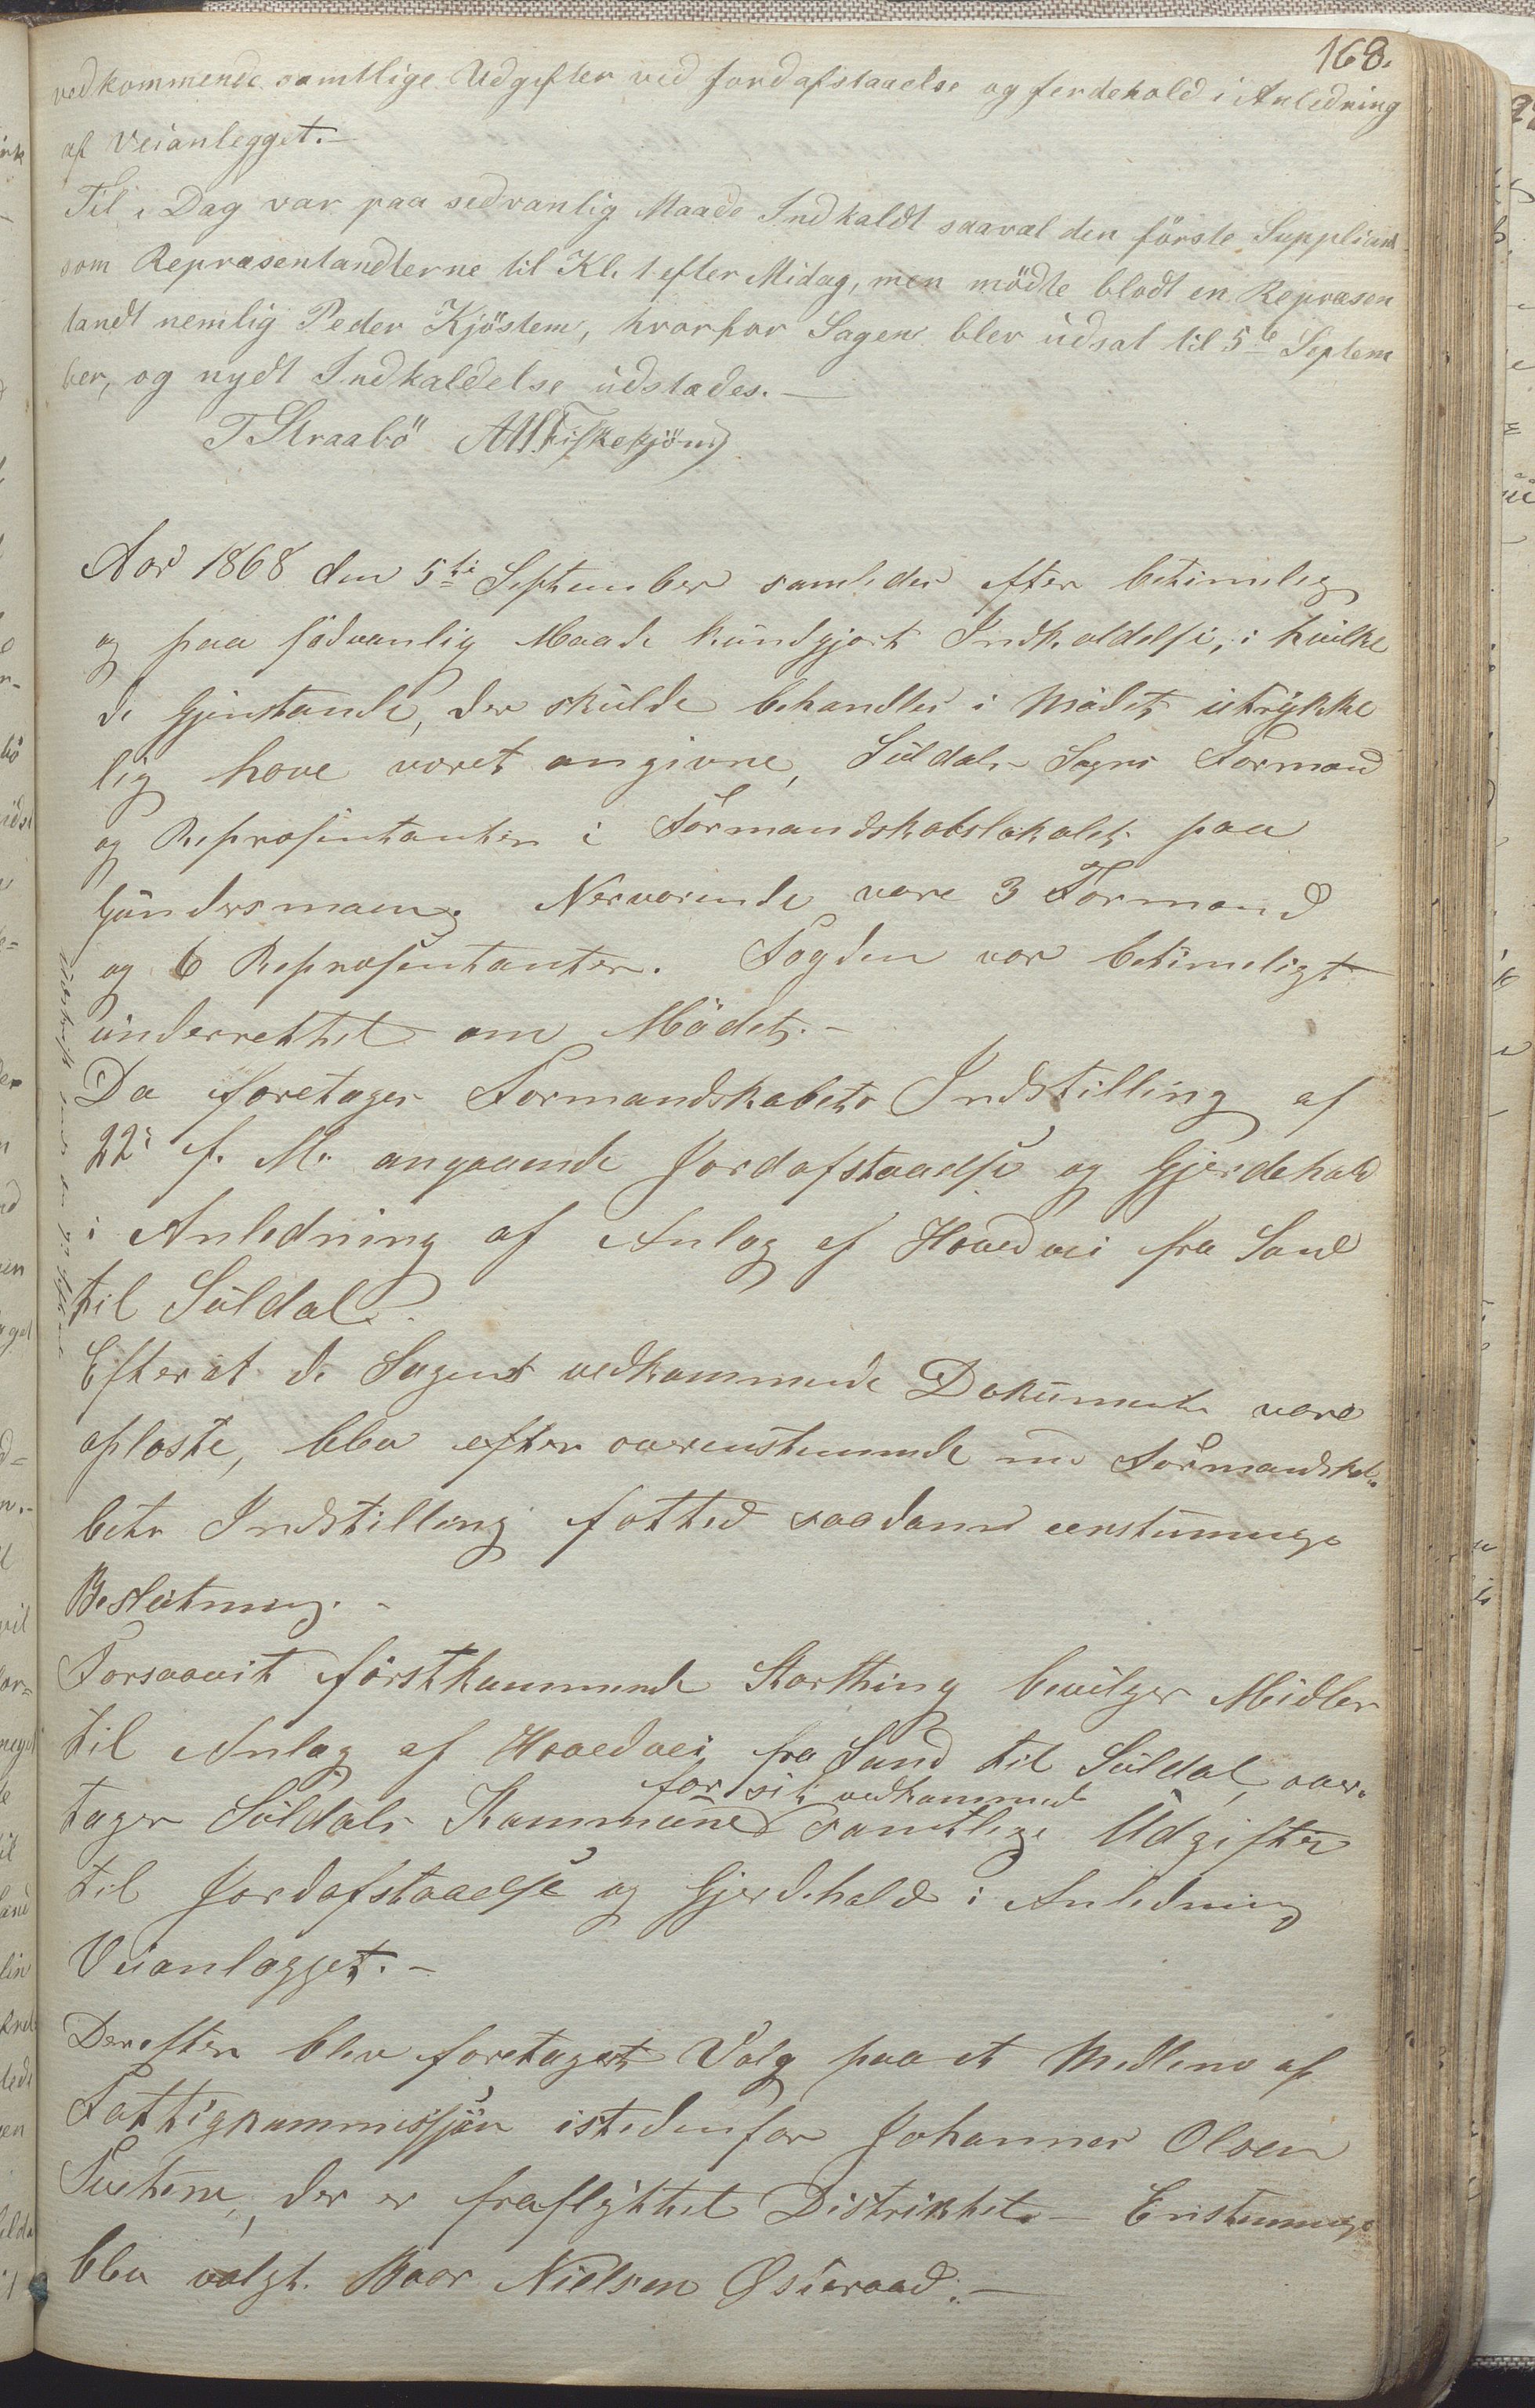 168.
vedkommende samtlige Udgifter ved Jordafstaaelse og Jerdehold i Anledning
af Veianlegget.—
Til i Dag var paa sedvanlig Maade Indkaldt saavæl den förste Suppliant
som Repræsentandterne til Kl. 1 efter Midag, men mödte blodt en Repræsen
tandt nemlig Peder Kjöstem, hvorfor Sagen blev udsat til 5te Septem
ber, og nydt Indkaldelse udstædes.—
T Straabö
Aar 1868 den 5te September samledes efter betimelig
og paa sædvanlig Maade kundgjort Indkaldelse, i hvilke
de Gjenstande, der skulde behandles i Mödet utrykke
lig have været angivne, Suldals Sogns Formænd
og Repræsentanter i Formandskabslokalet paa
Gundersmoen. Nerværende vare 3 Formænd
og 6 Repræsentanter. Fogden var betimeligt
underrettet om Mödet.—
Da foretages Formandskabets Indstilling af
22de f. M. angaaende Jordafstaaelse og Gjerdehold
i Anledning af Anlæg af Hovedvei fra Sand
til Suldal.
Efterat de Sagen vedkommende Dokumenter vare
oplæste, blev efter overenstemmende med Formandska-
bets Indstilling fatted saadann eenstemmige
Beslutning.—
Forsaavit förstkommende Storthing bevilger Midler
til Anlæg af Hovedvei fra Sand til Suldal, over-
for sit vedkommende
tager Suldals Kommune samtlige Udgifter
til Jordafstaaelse og Gjerdehold i Anledning
Veianlægget.—
Derefter blev foretaget Valg paa et Medlem af
Fattigkommissjön istedenfor Johannes Olsen
der er fraflyttet Distriktet.— Enstemmige
blev valgt Baar Nielsen Østeraad.—